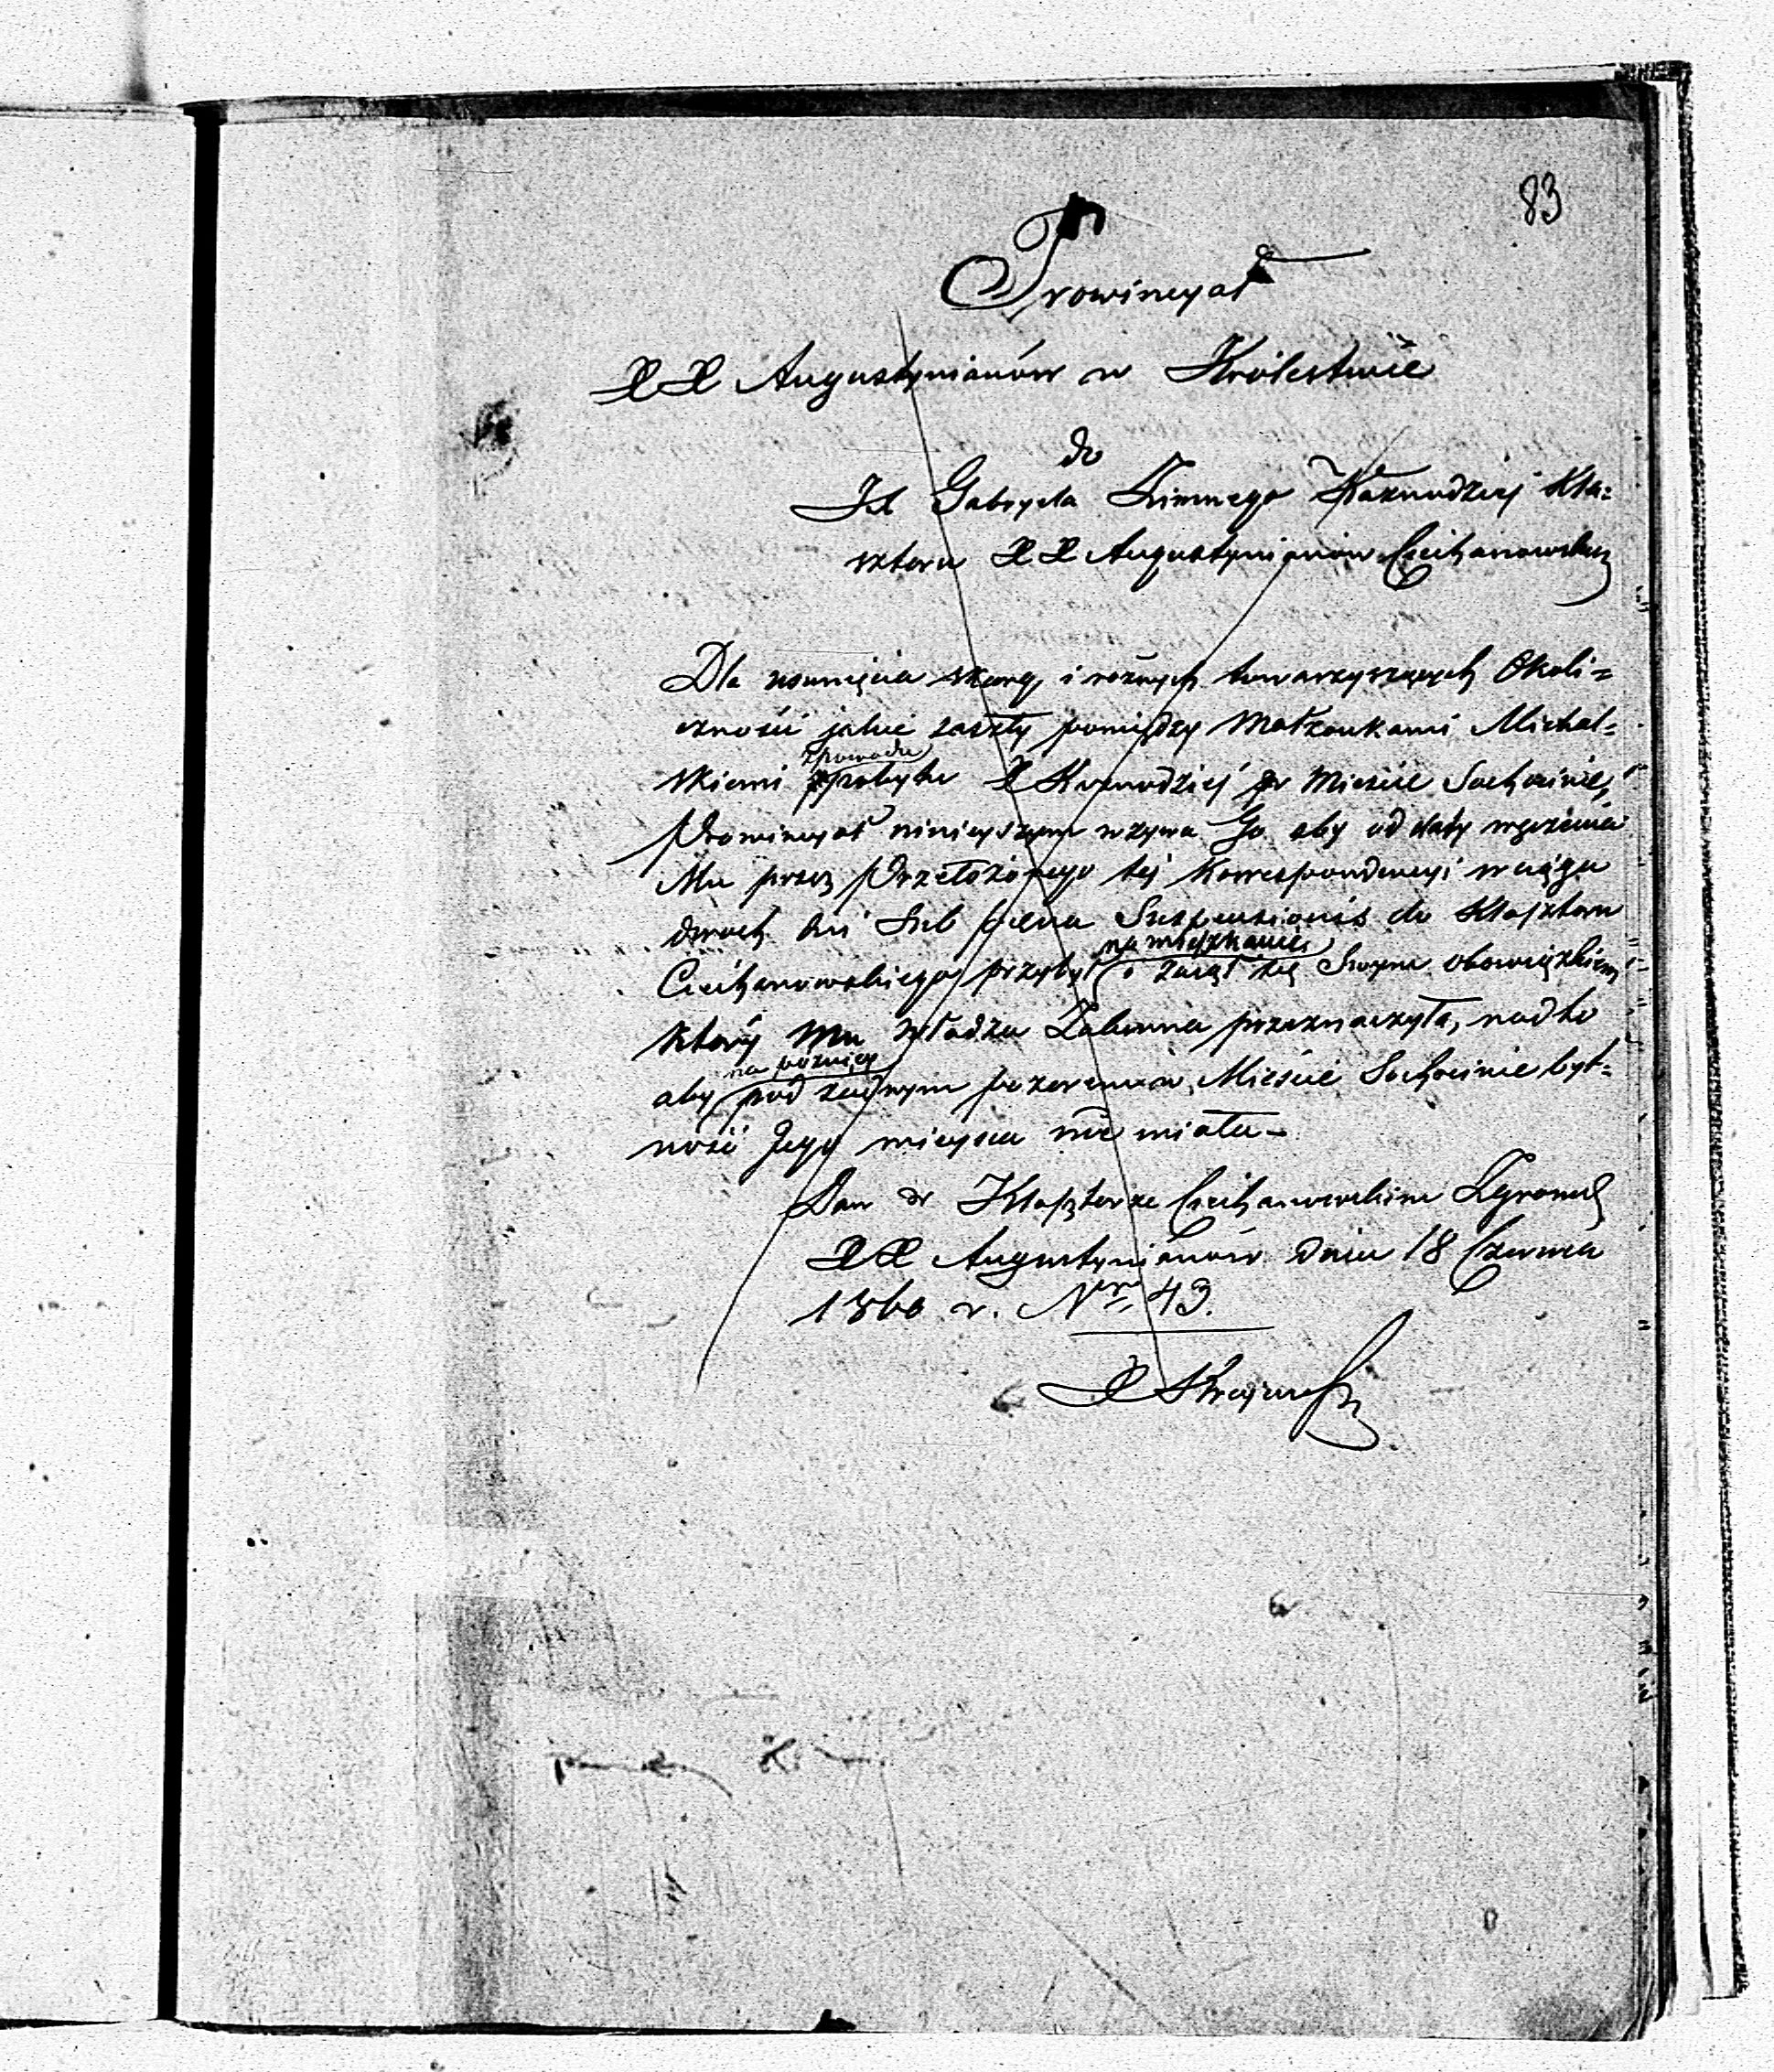 83
Prowincyał
XX Augustynianów w Królestwie
do
JX Gabryela Zimnego Kaznodziej Kla=
sztoru XX Augustynianów Ciechanowskiego
Dla usunięcia skargi i roznych towarzyszących Okoli=
czności jakie zaszły pomiędzy Małżonkami Michal=
z powodu
skiemi pobytu X Kaznodziej w Mieście Sochocinie,
Prowincyał niniejszym wzywa Go aby od daty wręczenia
Mu przez Przełożonego tej Korrespondencyi w ciągu
dwóch dni Sub pena Suspensionis do Klasztoru
na mieszkanie
Ciechanowskiego przybył i zajął się Swym obowiązkiem
który Mu Władza Zakonna przeznaczyła, nadto
na poźniej
aby pod żadnym pozorem w Mieście Sochocinie byt=
ność Jego miejsca nie miała –
Dan w Klasztorze Ciechanowskim Zgromadz
XX Augustynianów dnia 18 Czerwca
1860 r. Nr. 43.
X Krajewski